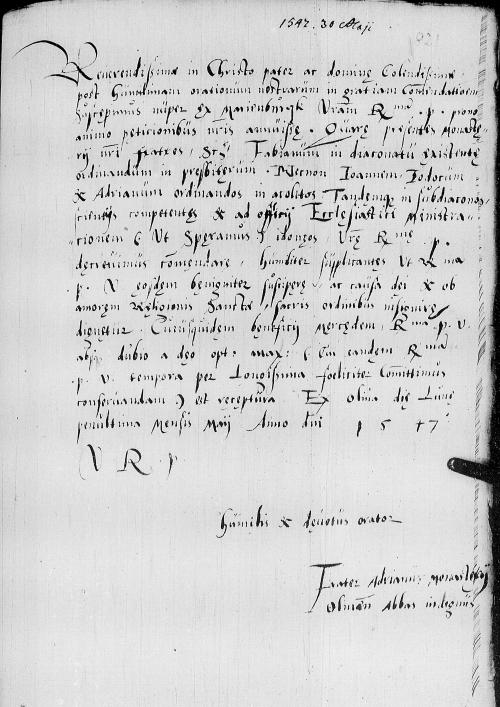 1547. 30 Maji
Reverendissime in Christo pater ac domine Colendissime
post humillimam orationum nostrarum in gratiam Commendationem
Suscepimus nuper ex Marienburgk Vram R mā . p . prono
animo peticionibus nris annuisse . Quare presentes monaste=
rij nri fratres , Scz Fabianum in diaconatu existente
ordinandum in presbiterum . Necnon Ioannem , Iodocum
& Adrianum ordinandos in acolitos Tandemq in subdiaconos,
scientijs competentes & ad officij Ecclesiastici ministra=
=tionem ( Ut Speramus ) idoneos , Vre R me p.
decreuimus comendare , humiliter supplicantes Ut R ma
p . V eosdem benigniter suscipere , ac causa dei & ob
amorem Religionis Sancta sacris ordinibus insignire
dignetur . Cuiusquidem beneficij mercedem , R ma . p . v .
absq dubio a deo opt : max : ( Cui eandem R ma
p . v . tempora per Longissima foeliciter Committimus
conseruandam ) est receptura . Ex oliua die Lune
penultima mensis Maij Anno dni 1 5 4 7
V R p
humilis & deuotus orator
Frater Adrianus monasterij
Oliuen Abbas indignus